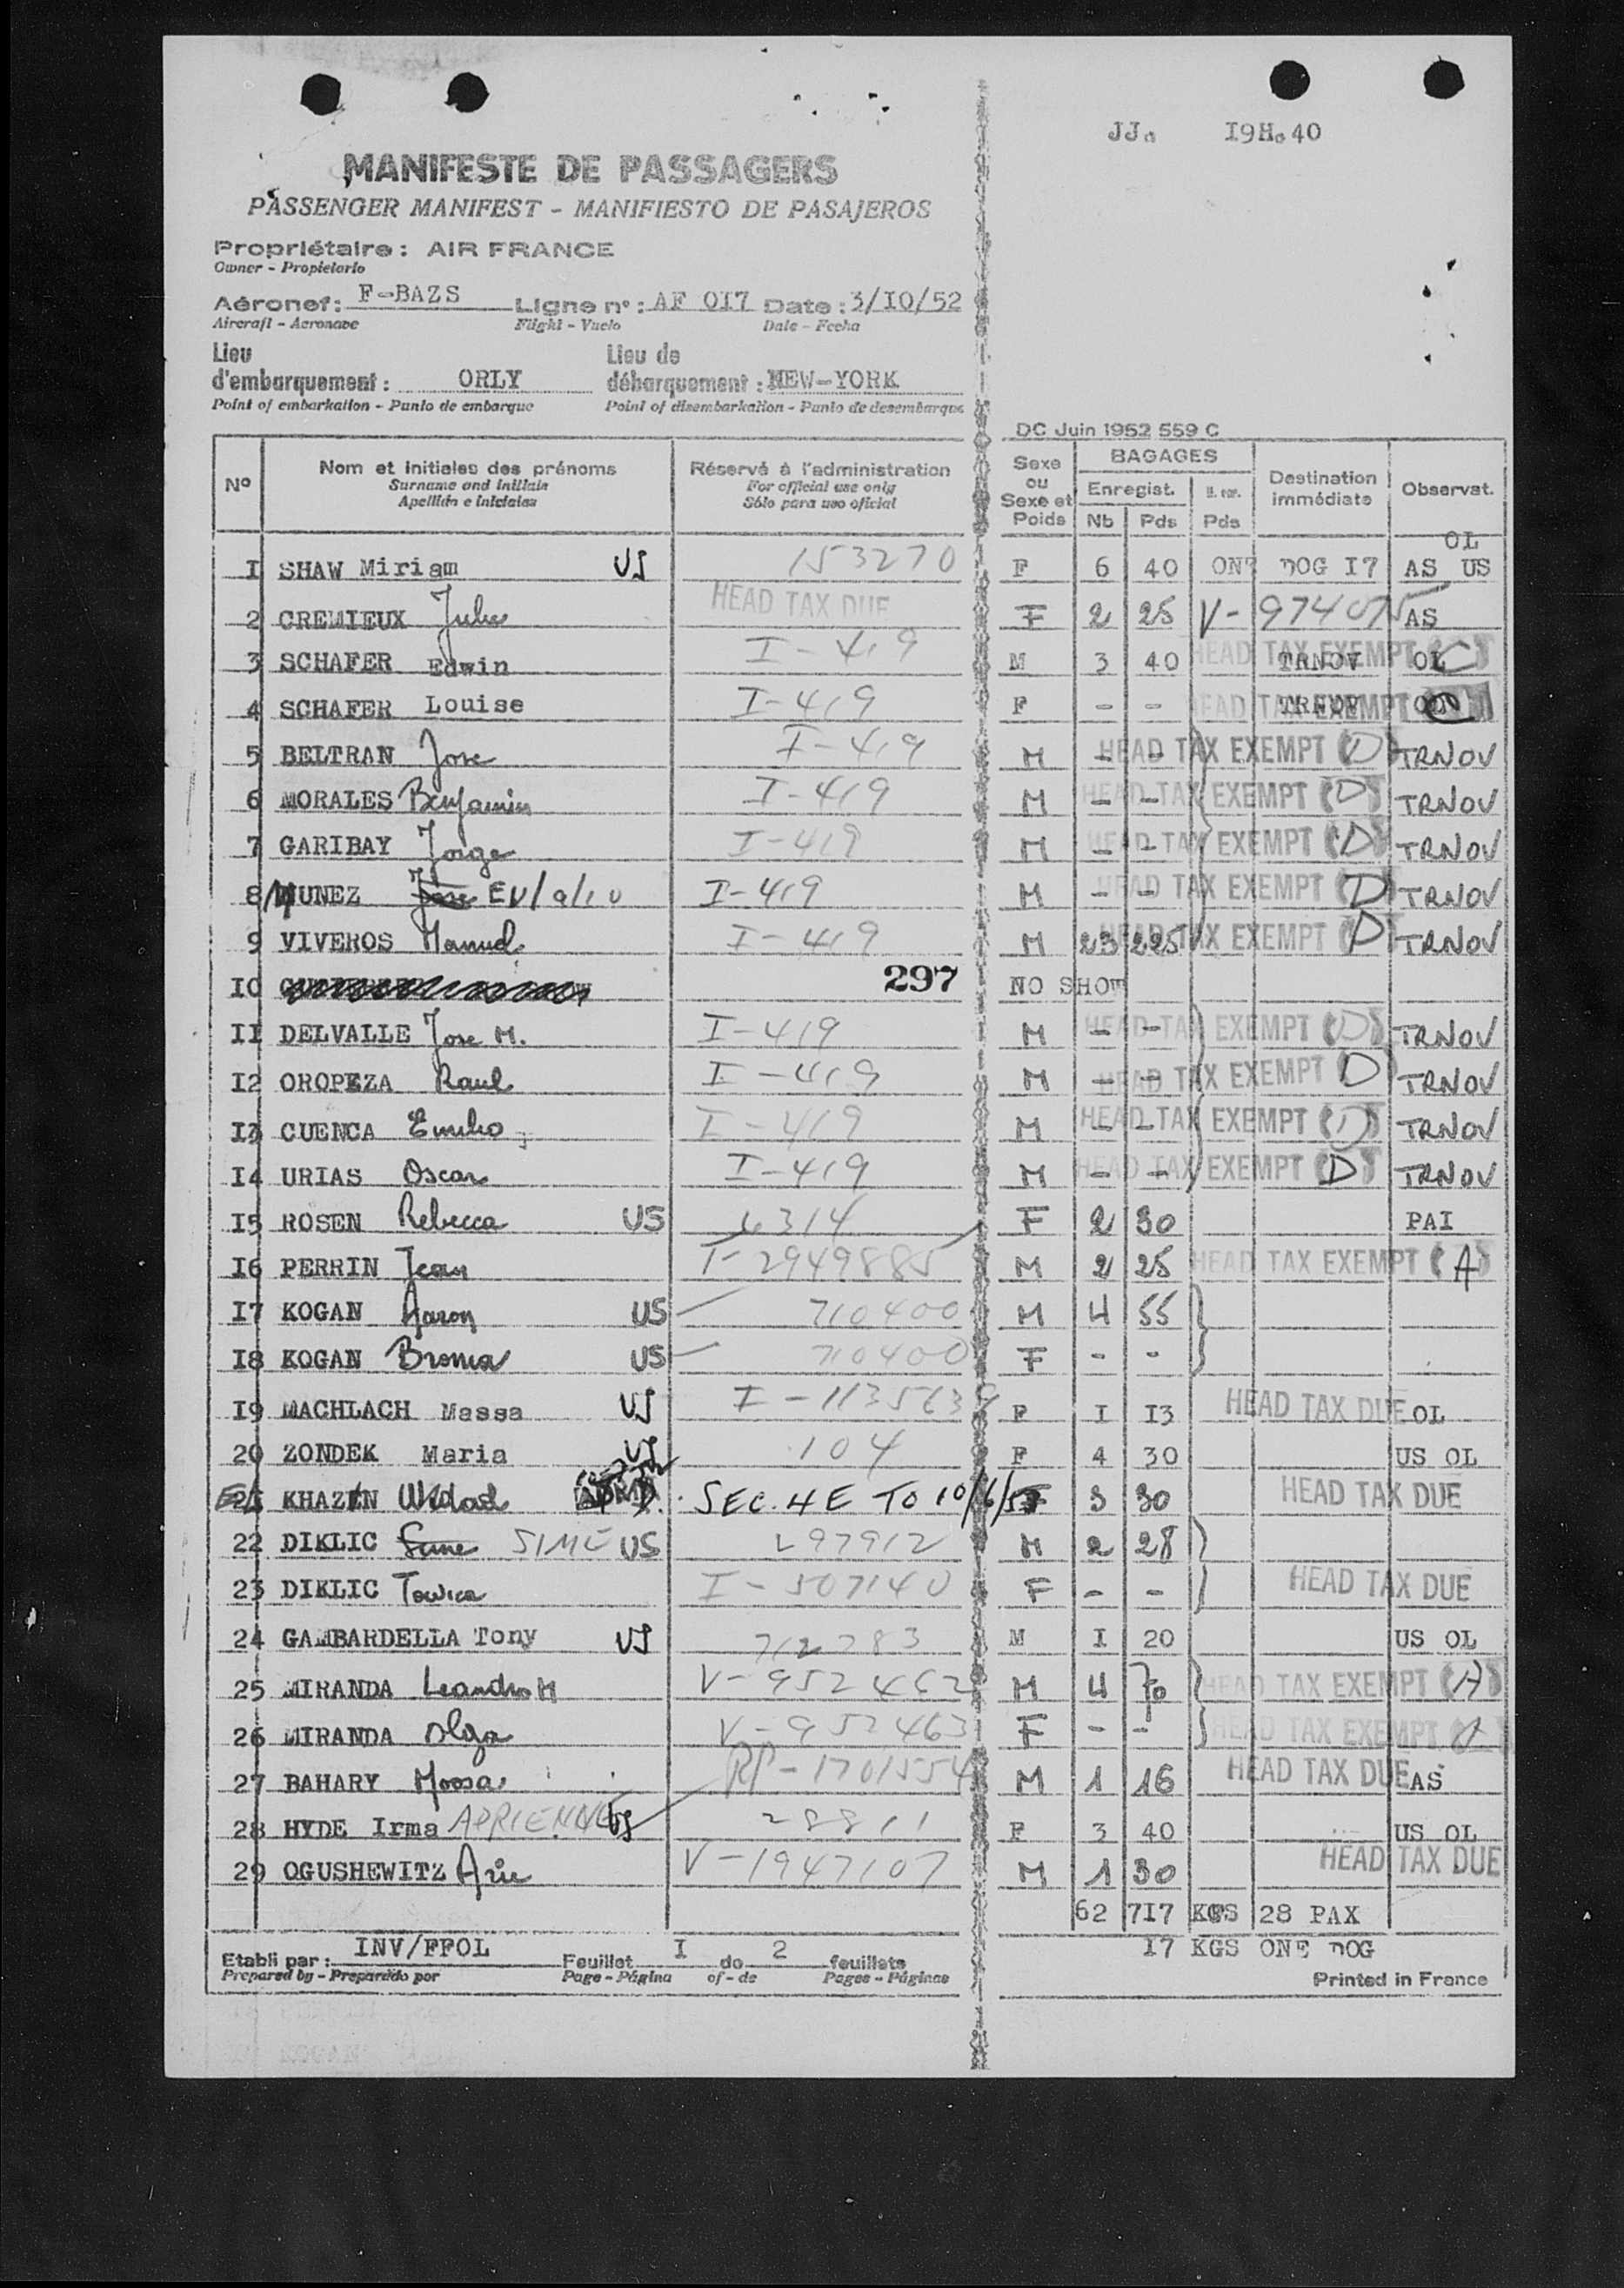 JJ. I9H.40
MANIFESTE DE PASSAGERS
PASSENGER MANIFEST - MANIFIESTO DE PASAJEROS
Propriétaire : AIR FRANCE
Owner - Propietario
Aéronef : F-BAZS Ligne n° : AF 0I7 Date : 3/IO/52
Aircraft - Aeronave Flight - Vuelo Date - Fecha
Lieu d'embarquement : ORLY Lieu de débarquement : NEW-YORK
Point of embarkation - Punto de embarque Point of disembarkation - Punto de desembarque
DC Juin 1952 559 C
N° Nom et initiales des prénoms Réservé à l'administration Sexe ou Sexe et Poids BAGAGES Destination immédiate Observat.
Surname and initials For official use only Enregist.
Apellido e iniciales Sólo para uso oficial Nb Pds Pds
OL
I SHAW Miriam US 153270 F 6 40 ONE DOG I7 AS US
2 CREMIEUX Jules HEAD TAX DUE F 2 25 V-974075 AS
3 SCHAFER Edwin I-419 M 3 40 HEAD TAX EXEMPT (C) TRNOV OL
4 SCHAFER Louise I-419 F - - HEAD TAX EXEMPT (C) TRNOV
5 BELTRAN Jose I-419 M - - HEAD TAX EXEMPT (D) TRNOV
6 MORALES Benjamin I-419 M - - HEAD TAX EXEMPT (D) TRNOV
7 GARIBAY Jorge I-419 M - - HEAD TAX EXEMPT (D) TRNOV
8 NUNEZ Jose I-419 M - - HEAD TAX EXEMPT (D) TRNOV
9 VIVEROS Manuel I-419 M 23 225 HEAD TAX EXEMPT (D) TRNOV
IO 297 NO SHOW
II DELVALLE Jose M. I-419 M - - HEAD TAX EXEMPT (D) TRNOV
I2 OROPEZA Raul I-419 M - - HEAD TAX EXEMPT (D) TRNOV
I3 CUENCA Emilio I-419 M - - HEAD TAX EXEMPT (D) TRNOV
I4 URIAS Oscar I-419 M - - HEAD TAX EXEMPT (D) TRNOV
I5 ROSEN Rebecca US 6314 F 2 30 PAI
I6 PERRIN Jean I-2949885 M 2 25 HEAD TAX EXEMPT (A)
I7 KOGAN Aaron US 710400 M 4 55
I8 KOGAN Bronia US 710400 F - -
I9 MACHLACH Massa US I-1135639 F I I3 HEAD TAX DUE OL
20 ZONDEK Maria US 104 F 4 30 US OL
KHAZEN Widad SEC. 4E TO 10/6/5 F 3 30 HEAD TAX DUE
22 DIKLIC SIME US 297912 M 2 28
23 DIKLIC Towica I-507140 F - - HEAD TAX DUE
24 GAMBARDELLA Tony US 712783 M I 20 US OL
25 MIRANDA Leandro M V-952462 M 4 70 HEAD TAX EXEMPT (A)
26 MIRANDA Olga V-952463 F - - HEAD TAX EXEMPT (A)
27 BAHARY Moosa RP-1701554 M 1 16 HEAD TAX DUE AS
28 HYDE Irma ADRIENNE US 28811 F 3 40 US OL
29 OGUSHEWITZ Arie V-1947107 M 1 30 HEAD TAX DUE
62 7I7 KGS 28 PAX
I7 KGS ONE DOG
Etabli par : INV/FFOL Feuillet I de 2 feuillets
Prepared by - Preparado por Page - Página of - de Pages - Páginas
Printed in France